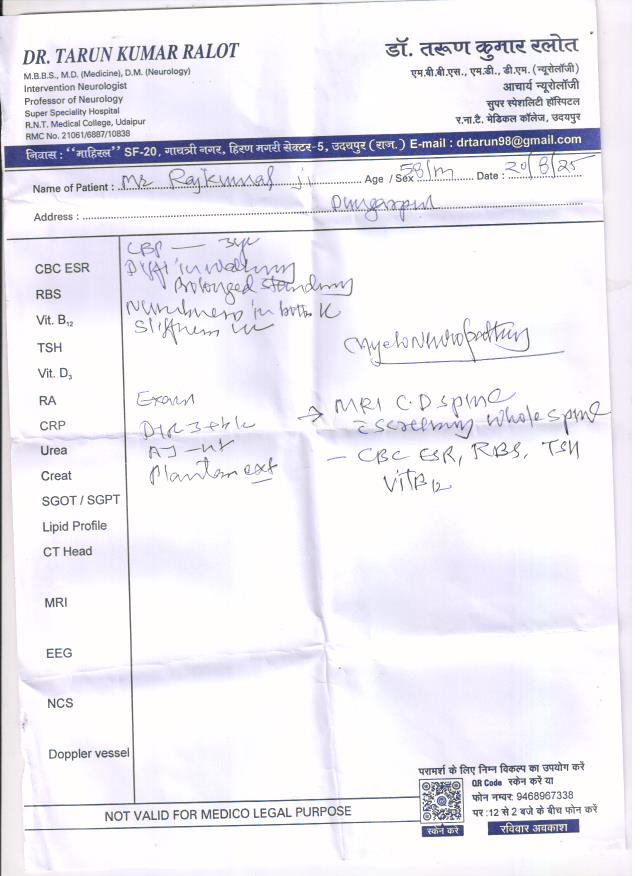 DR. TARUN KUMAR RALOT
M.B.B.S., M.D. (Medicine), D.M. (Neurology)
Intervention Neurologist
Professor of Neurology
Super Speciality Hospital
R.N.T. Medical College, Udaipur
RMC No. 21061/6887/10838
डॉ. तरूण कुमार रलोत
एम.बी.बी.एस., एम.डी., डी.एम. (न्यूरोलॉजी)
आचार्य न्यूरोलॉजी
सुपर स्पेशलिटी हॉस्पिटल
र.ना.टै. मेडिकल कॉलेज, उदयपुर
निवास : "माहिरल" SF-20, गायत्री नगर, हिरण मगरी सेक्टर-5, उदयपुर (राज.) E-mail : drtarun98@gmail.com
Name of Patient : Mr Rajkumar ji Age / Sex 58/m Date : 20/8/25
Address : Dungarpur
CBC ESR
RBS
Vit. B12
TSH
Vit. D3
RA
CRP
Urea
Creat
SGOT / SGPT
Lipid Profile
CT Head
MRI
EEG
NCS
Doppler vessel
CBP — 3yr
Diff in walking
Prolonged standing
Numbness in both
Stiffness
Myeloneuropathy
Exam
Plantar ext
→ MRI C.D spine
screening whole spine
– CBC ESR, RBS, TSH
Vit B12
परामर्श के लिए निम्न विकल्प का उपयोग करें
QR Code स्केन करें या
फोन नम्बर: 9468967338
पर : 12 से 2 बजे के बीच फोन करें
स्कैन करे
रविवार अवकाश
NOT VALID FOR MEDICO LEGAL PURPOSE